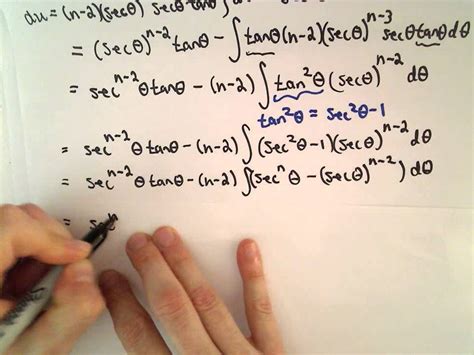 du = (n-2)(secθ) secθ tanθ
= (secθ)^{n-2} tanθ - ∫ tanθ (n-2)(secθ)^{n-3} secθ tanθ dθ
= sec^{n-2}θ tanθ - (n-2) ∫ tan²θ (secθ)^{n-2} dθ
tan²θ = sec²θ-1
= sec^{n-2}θ tanθ - (n-2) ∫ (sec²θ-1)(secθ)^{n-2} dθ
= sec^{n-2}θ tanθ - (n-2) ∫ (sec^nθ - (secθ)^{n-2}) dθ
= sec